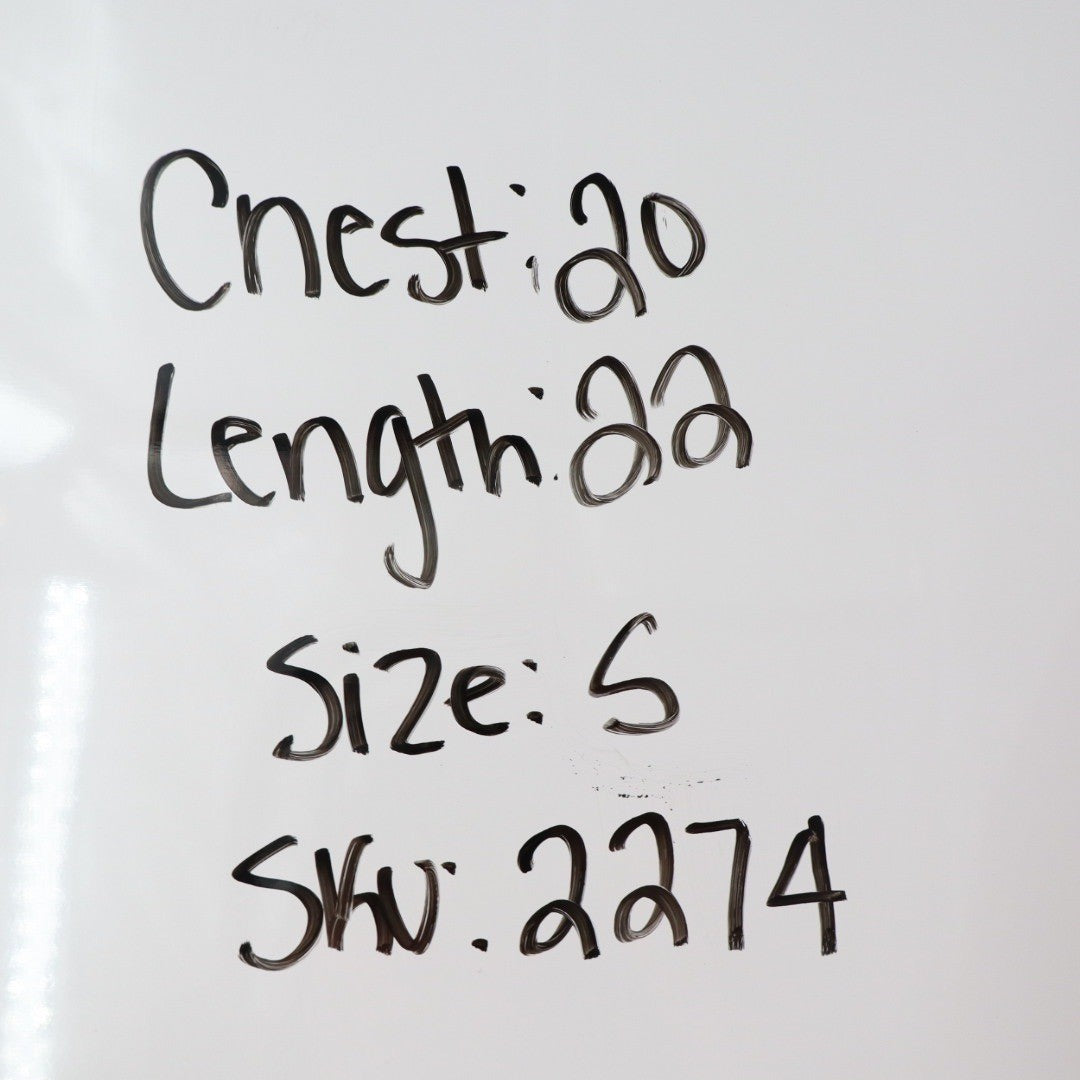 Chest: 20
Length: 22
Size: S
Sku: 2274